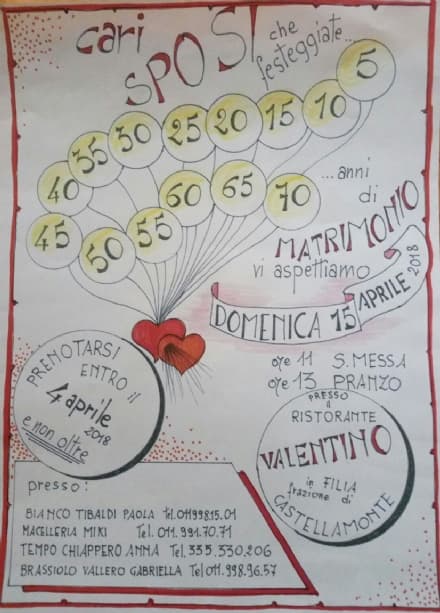 cari
SPOSI che
festeggiate...
5
10
15
20
25
30
35
40
45
50
55
60
65
70
...anni
di
MATRIMONIO
vi aspettiamo
DOMENICA 15
APRILE 2018
ore 11 S. MESSA
ore 13 PRANZO
PRESSO
il
RISTORANTE
VALENTINO
in FILIA
frazione di
CASTELLAMONTE
PRENOTARSI
ENTRO il
4 aprile
2018
e non oltre
presso:
BIANCO TIBALDI PAOLA tel. 011998.15.01
MACELLERIA MIKI Tel. 011. 991.70.71
TEMPO CHIAPPERO ANNA Tel. 335.530.206
BRASSIOLO VALLERO GABRIELLA Tel 011.998.96.57